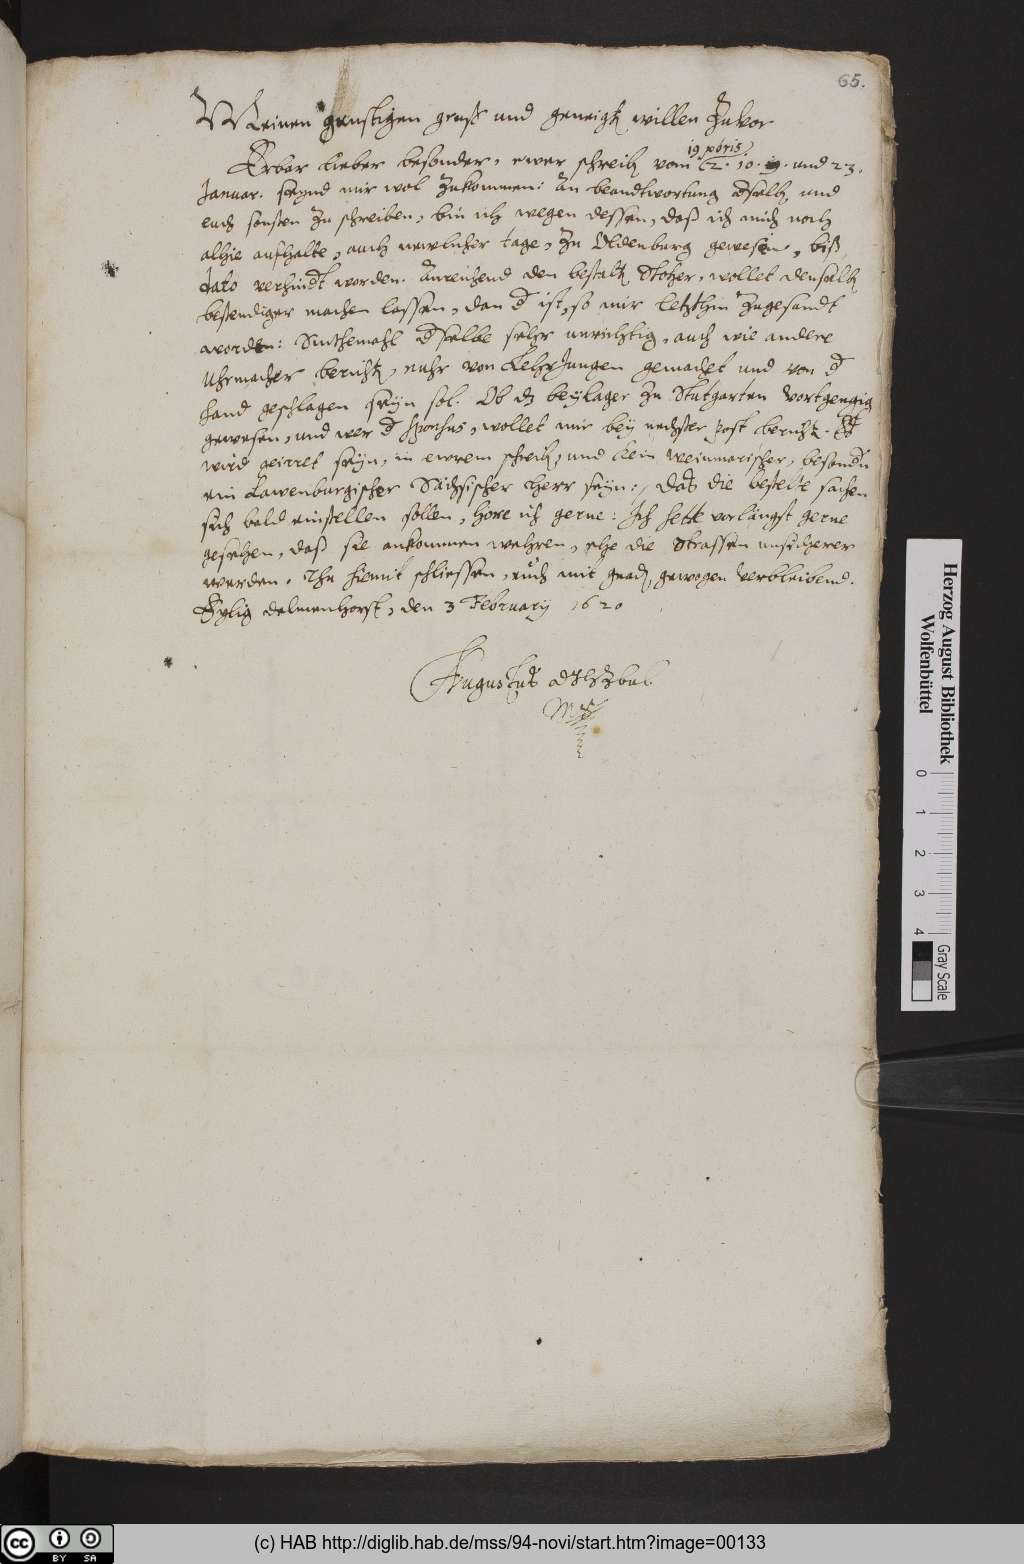 65.
Meinen gunstigen gruß und geneigt willen zuvor
Erbar lieber besonder, ewer schreib vom 12. 10. 19. und 23.
Januar. seynd mir wol zukommen: An beandtwortung dselb, und
euch sonsten zu schreiben, bin ich wegen dessen, daß ich mich noch
alhie auffhalte, auch newlicher tage, zu Oldenburg gewesen, biß
dato verhindt worden. Anreichend den bestalt, wollet denselb
bestendiger machen lassen, dan d ist, so mir letzthin zugesandt
worden: Sinthemahl dselbe sehr unrichtig, auch wie andere
Uhrmacher bericht, nuhr von Lehrjungen gemachet und von d
hand geschlagen seyn sol. Ob dz beylager zu Stutgarten vortgengig
gewesen, und wer d sponsus, wollet mir bey nechster post bericht. Es
wird geirret seyn, in ewrem schreib, und kein Weinmarischer, besondn
ein Lawenburgischer Sächsischer Herr seyn: Das die bestelte sachen
sich bald einstellen sollen, hore ich gerne: Ich hett vorlängst gerne
gesehen, daß sie ankommen wehren, ehe die Strassen unsicherer
werden. Thu hiemit schliessen, euch mit gnad, gewogen verbleibend.
Eylig delmenhorst, den 3 February 1620
Augustus
Herzog August Bibliothek
Wolfenbüttel
0 1 2 3 4
Gray Scale
cc BY SA
(c) HAB http://diglib.hab.de/mss/94-novi/start.htm?image=00133